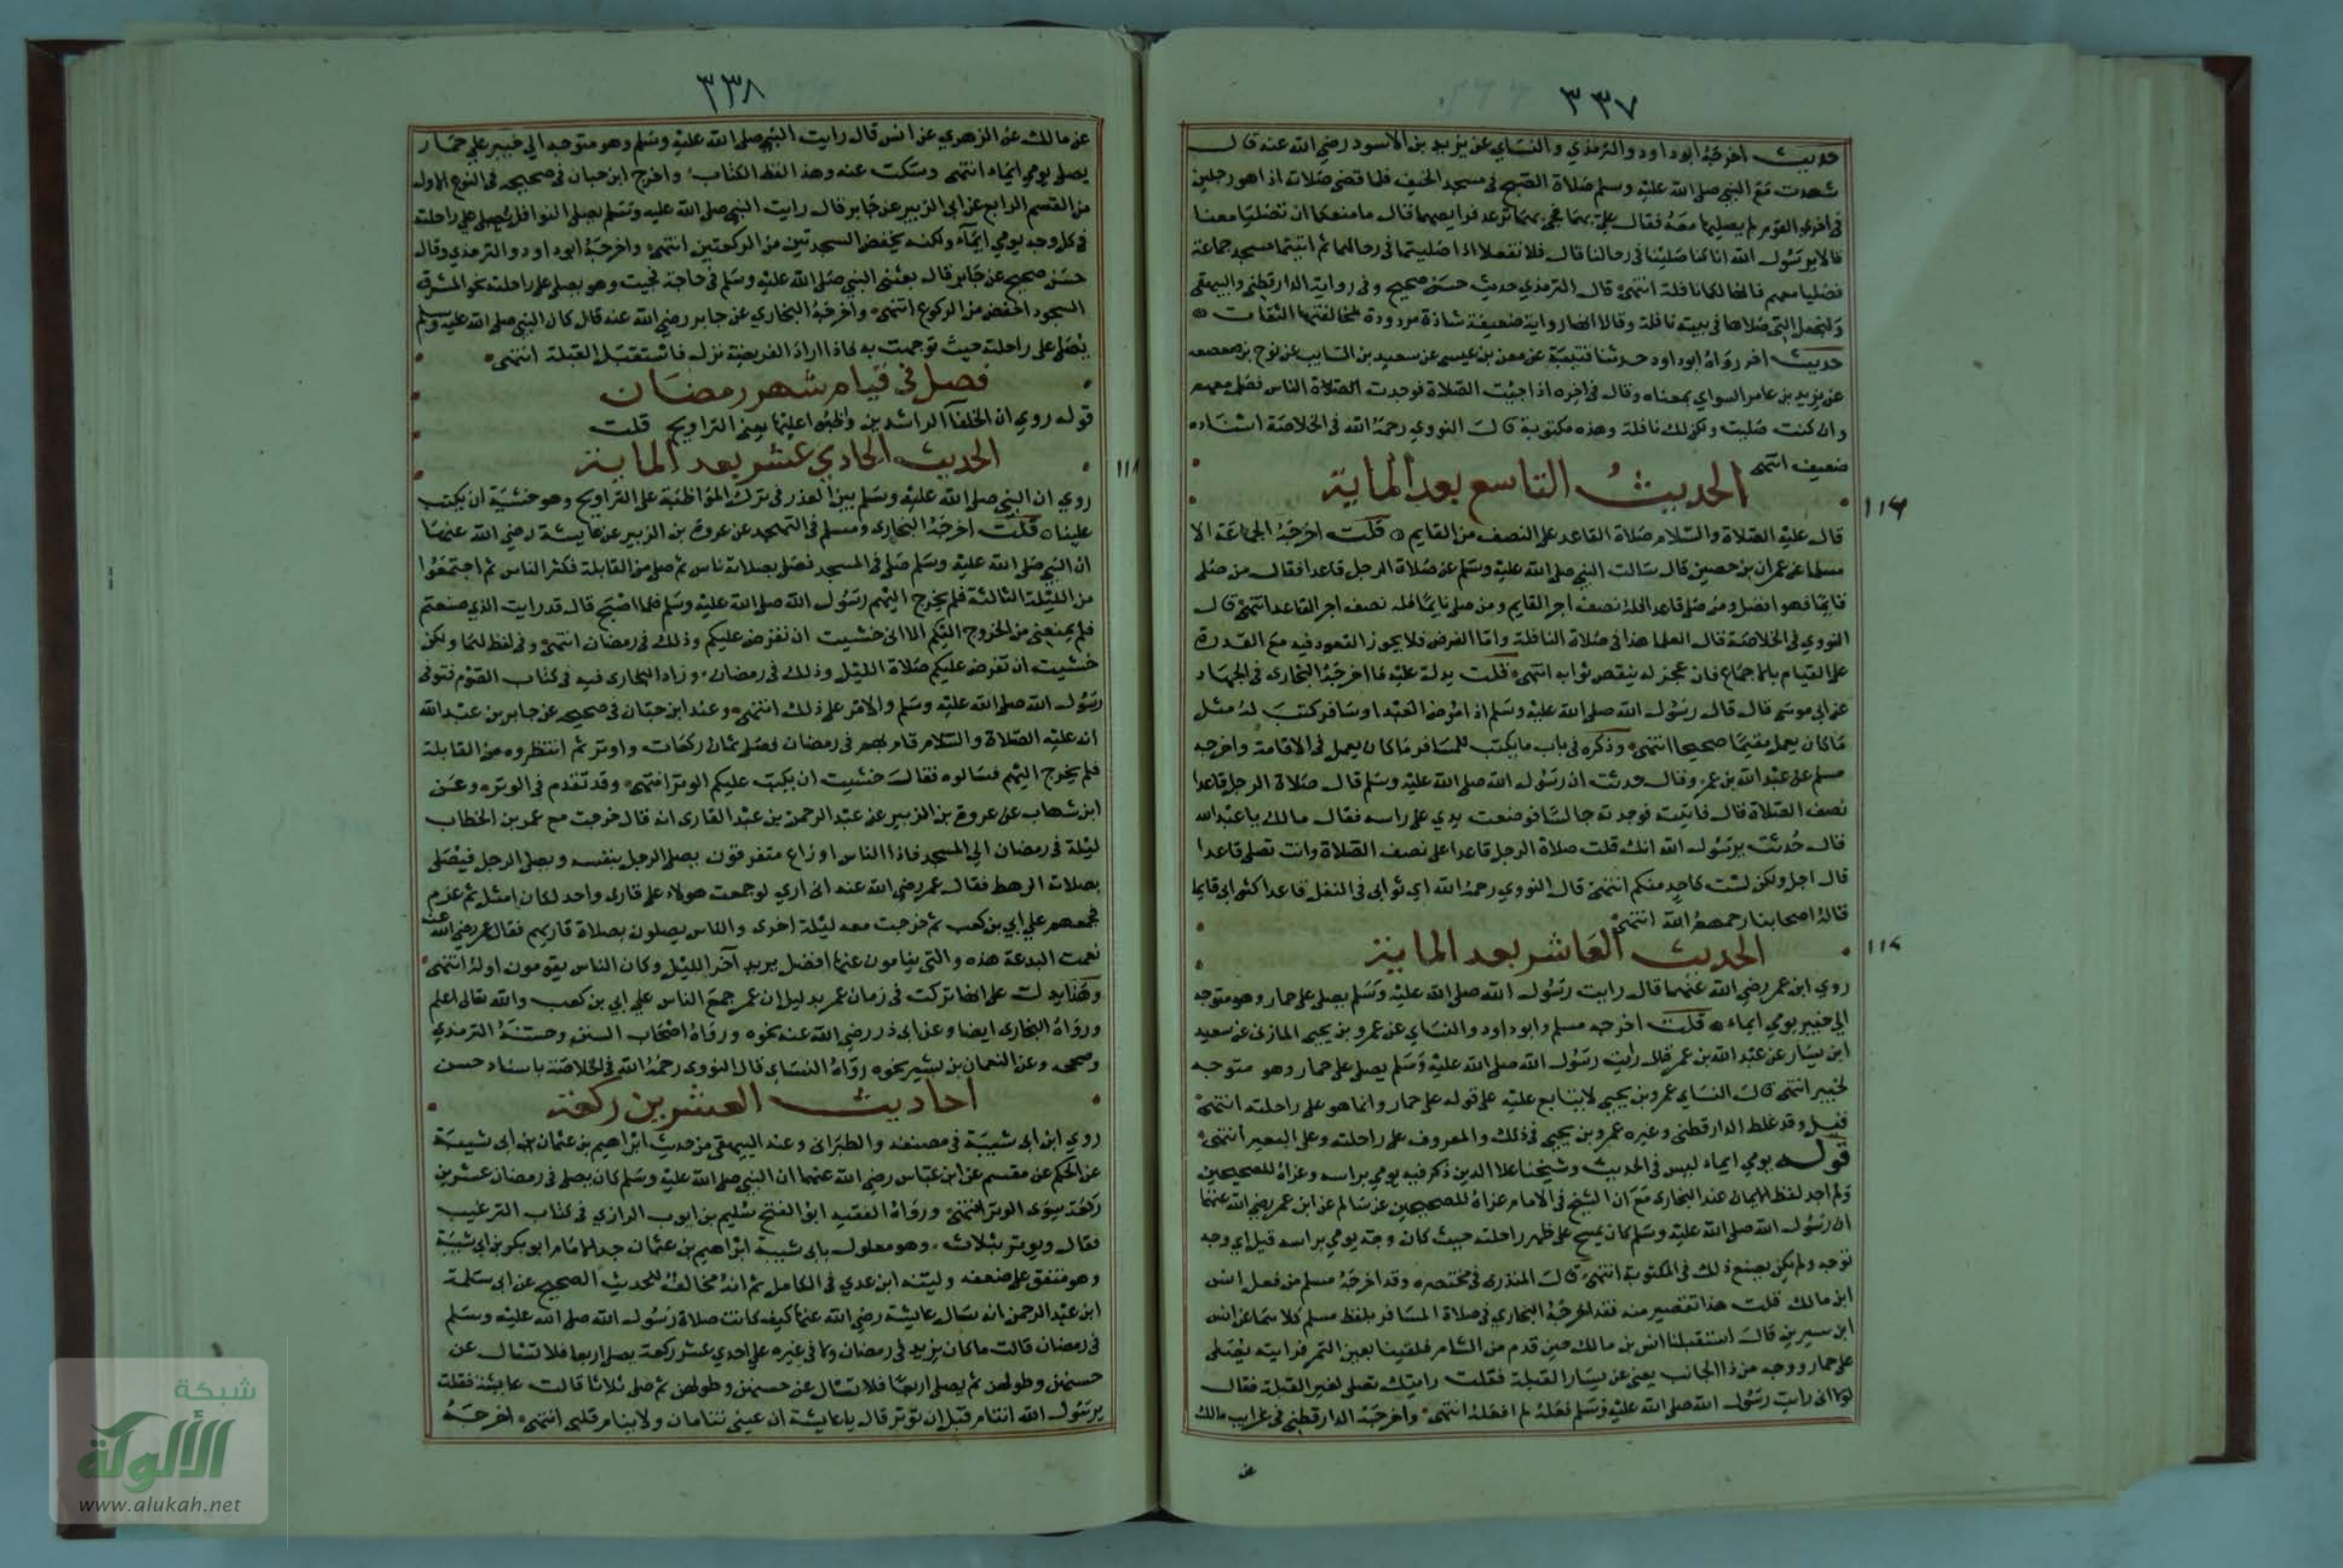 ٣٣٧
حديث اخرجه ابوداود والترمذي والنساي عن يزيد بن الاسود رضي الله عنه قال
شهدت مع النبي صلى الله عليه وسلم صلاة الصبح في مسجد الخيف فلما قضى صلاته اذا هو رجلين
في اخري القوم لم يصليا معه فقال علي بهما فجي بهما ترعد فرايصهما قال ما منعكما ان تصليا معنا
قالا يرسول الله انا كنا صلينا في رحالنا قال فلا تفعلا اذا صليتما في رحالكما ثم اتيتما مسجد جماعة
فصليا معهم فانها لكما نافلة انتهى قال الترمذي حديث حسن صحيح وفي رواية الدارقطني والبيهقي
وليجعل التي صلاها في بيته نافلة وقالا انها رواية ضعيفة شاذة مردودة لمخالفتها الثقات
حديث اخر رواه ابو داود حدثنا قتيبة عن معن بن عيسى عن سعيد بن السايب عن نوح بن صعصعه
عن يزيد بن عامر السواي بمعناه وقال في اخره اذا جيت الصلاة فوجدت الصلاة الناس فصل معهم
وان كنت صليت ولكن لك نافلة وهذه مكتوبة قال النووي رحمه الله في الخلاصة اسناده
ضعيف انتهى
الحديث التاسع بعد الماية
١١٦
قال عليه الصلاة والسلام صلاة القاعد على النصف من القايم قلت اخرجه الجماعة الا
مسلما عن عمران بن حصين قال سالت النبي صلى الله عليه وسلم عن صلاة الرجل قاعدا فقال من صلى
قايما فهو افضل ومن صلى قاعدا فله نصف اجر القايم ومن صلى نايما فله نصف اجر القاعد انتهى قال
النووي في الخلاصة قال العلما هذا في صلاة النافلة واما الفرض فلا يجوز القعود فيه مع القدرة
على القيام بالاجماع فان عجز لم ينقص ثوابه انتهى قلت يدل عليه ما اخرجه البخاري في الجهاد
عن ابي موسى قال قال رسول الله صلى الله عليه وسلم اذا مرض العبد او سافر كتب له مثل
ما كان يعمل مقيما صحيحا انتهى وذكره في باب ما يكتب للمسافر ما كان يعمل في الاقامة واخرجه
مسلم عن عبد الله بن عمر وقال حدثت ان رسول الله صلى الله عليه وسلم قال صلاة الرجل قاعدا
نصف الصلاة قال فاتيته فوجدته جالسا فوضعت يدي على راسه فقال مالك يا عبد الله
قال حُدثت يرسول الله انك قلت صلاة الرجل قاعدا على نصف الصلاة وانت تصلي قاعدا
قال اجل ولكن لست كاحد منكم انتهى قال النووي رحمه الله اي ثوابي في النفل قاعدا كثوابي قايما
قاله اصحابنا رحمهم الله انتهى
الحديث العاشر بعد الماية
١١٧
روي ابن عمر رضي الله عنهما قال رايت رسول الله صلى الله عليه وسلم يصلي على حمار وهو متوجه
الي خيبر يومي ايماء قلت اخرجه مسلم وابوداود والنساي عن عمرو بن يحيى المازني عن سعيد
ابن يسار عن عبد الله بن عمر قال رايت رسول الله صلى الله عليه وسلم يصلي على حمار وهو متوجه
لخيبر انتهى قال النساي عمرو بن يحيى لا يتابع عليه على قوله على حمار وانما هو على راحلته انتهى
فقيل وقد غلط الدارقطني وغيره عمرو بن يحيى في ذلك والمعروف على راحلته وعلى البعير انتهى
قوله يومي ايماء ليس في الحديث وشيخنا علا الدين ذكر فيه يومي براسه وعزاه للصحيحين
ولم اجد لفظ الايماء عند البخاري مع ان الشيخ في الامام عزاه للصحيحين عن سالم عن ابن عمر رضي الله عنهما
ان رسول الله صلى الله عليه وسلم كان يسبح على ظهر راحلته حيث كان وجهه يومي براسه قبل اي وجه
توجه ولم يكن يصنع ذلك في المكتوبة انتهى قال المنذري في مختصره وقد اخرجه مسلم من فعل انس
ابن مالك قلت هذا تقصير منه فقد اخرجه البخاري في صلاة المسافر بلفظ مسلم كلاهما عن انس
ابن سيرين قال استقبلنا انس بن مالك حين قدم من الشام فلقيناه بعين التمر فرايته يصلي
على حمار ووجهه من ذا الجانب يعني عن يسار القبلة فقلت رايتك تصلي لغير القبلة فقال
لولا اني رايت رسول الله صلى الله عليه وسلم فعله لم افعله انتهى واخرجه الدارقطني في غرايب مالك
عن
٣٣٨
عن مالك عن الزهري عن انس قال رايت النبي صلى الله عليه وسلم وهو متوجه الي خيبر على حمار
يصلي يومي ايماء انتهى وسكت عنه وهذا لفظ الكتاب واخرج ابن حبان في صحيحه في النوع الاول
من القسم الرابع عن ابي الزبير عن جابر قال رايت النبي صلى الله عليه وسلم يصلي النوافل يصلي على راحلته
في كل وجه يومي ايماء ولكنه يخفض السجدتين من الركعتين انتهى واخرجه ابوداود والترمذي وقال
حسن صحيح عن جابر قال بعثني النبي صلى الله عليه وسلم في حاجة فجيت وهو يصلي على راحلته نحو المشرق
السجود اخفض من الركوع انتهى واخرجه البخاري عن جابر رضي الله عنه قال كان النبي صلى الله عليه وسلم
يصلي على راحلته حيث توجهت به فاذا اراد الفريضة نزل فاستقبل القبلة انتهى
فصل في قيام شهر رمضان
قوله روي ان الخلفآ الراشدين واظبوا عليها يعني التراويح قلت
الحديث الحادي عشر بعد الماية
١١٨
روي ان النبي صلى الله عليه وسلم بين العذر في ترك المواظبة على التراويح وهو خشية ان يكتب
علينا قلت اخرجه البخاري ومسلم في التهجد عن عروة بن الزبير عن عايشة رضي الله عنها
ان النبي صلى الله عليه وسلم صلى في المسجد فصلى بصلاته ناس ثم صلى من القابلة فكثر الناس ثم اجتمعوا
من الليلة الثالثة فلم يخرج اليهم رسول الله صلى الله عليه وسلم فلما اصبح قال قد رايت الذي صنعتم
فلم يمنعني من الخروج اليكم الا اني خشيت ان تفرض عليكم وذلك في رمضان انتهى وفي لفظ لهما ولكن
خشيت ان تفرض عليكم صلاة الليل وذلك في رمضان وزاد البخاري فيه في كتاب الصوم فتوفى
رسول الله صلى الله عليه وسلم والامر على ذلك انتهى وعند ابن حبان في صحيحه عن جابر بن عبد الله
انه عليه الصلاة والسلام قام بهم في رمضان فصلى ثمان ركعات واوتر ثم انتظروه من القابلة
فلم يخرج اليهم فسالوه فقال خشيت ان يكتب عليكم الوتر انتهى وقد تقدم في الوتر وعن
ابن شهاب عن عروة بن الزبير عن عبد الرحمن بن عبد القاري انه قال خرجت مع عمر بن الخطاب
ليلة في رمضان الي المسجد فاذا الناس اوزاع متفرقون يصلي الرجل بنفسه ويصلي الرجل فيصلي
بصلاته الرهط فقال عمر رضي الله عنه اني اري لو جمعت هولاء على قاري واحد لكان امثل ثم عزم
فجمعهم علي ابي بن كعب ثم خرجت معه ليلة اخرى والناس يصلون بصلاة قاريهم فقال عمر رضي الله عنه
نعمت البدعة هذه والتي ينامون عنها افضل يريد آخر الليل وكان الناس يقومون اوله انتهى
وهذا يدل على انها تركت في زمان عمر بدليل ان عمر جمع الناس علي ابي بن كعب والله تعالى اعلم
ورواه البخاري ايضا وعن ابي ذر رضي الله عنه نحوه ورواه اصحاب السنن وحسنه الترمذي
وصححه وعن النعمان بن بشير نحوه رواه النساي قال النووي رحمه الله في الخلاصة باسناد حسن
احاديث العشرين ركعة
روي ابن ابي شيبة في مصنفه والطبراني وعند البيهقي من حديث ابراهيم بن عثمان بن ابي شيبة
عن الحكم عن مقسم عن ابن عباس رضي الله عنهما ان النبي صلى الله عليه وسلم كان يصلي في رمضان عشرين
ركعة سوى الوتر انتهى ورواه الفقيه ابو الفتح سليم بن ايوب الرازي في كتاب الترغيب
فقال ويوتر بثلاث وهو معلول بابي شيبة ابراهيم بن عثمان جد الامام ابو بكر بن ابي شيبة
وهو متفق على ضعفه ولينه ابن عدي في الكامل ثم انه مخالف للحديث الصحيح عن ابي سلمة
ابن عبد الرحمن انه سال عايشة رضي الله عنها كيف كانت صلاة رسول الله صلى الله عليه وسلم
في رمضان قالت ما كان يزيد في رمضان ولا في غيره علي احدي عشر ركعة يصلي اربعا فلا تسال عن
حسنهن وطولهن ثم يصلي اربعا فلا تسال عن حسنهن وطولهن ثم صلى ثلاثا قالت عايشة فقلت
يرسول الله اتنام قبل ان توتر قال يا عايشة ان عيني تنامان ولا ينام قلبي انتهى اخرجه
شبكة
الألوكة
www.alukah.net